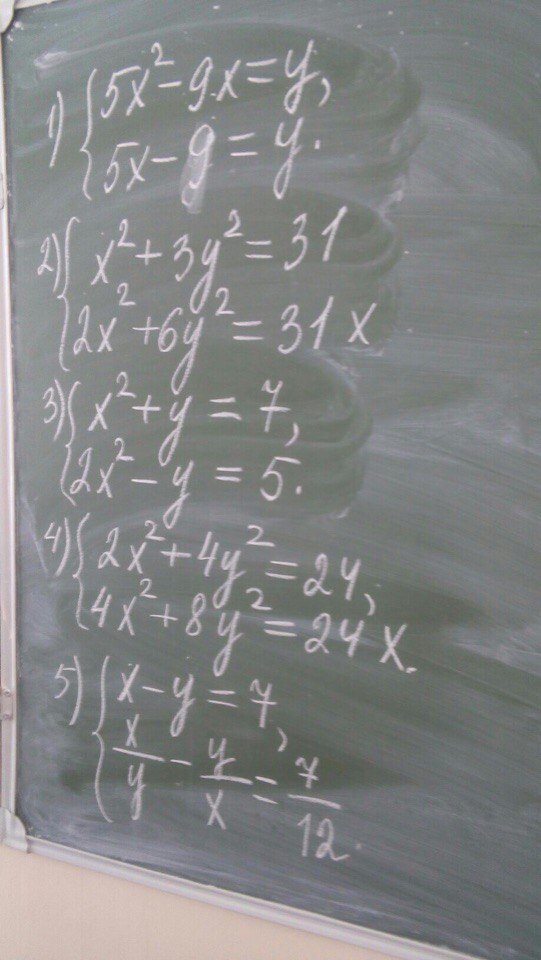 1) { 5x² - 9x = y,
5x - 9 = y.
2) { x² + 3y² = 31
2x² + 6y² = 31x
3) { x² + y = 7,
2x² - y = 5.
4) { 2x² + 4y² = 24,
4x² + 8y² = 24x.
5) { x - y = 7,
x/y - y/x = 7/12.